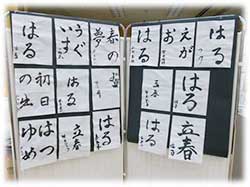 春の
夢
うぐ
いす
はる
はる
初日
の出
はる
立春
はつ
ゆめ
はる
えが
お
はる
はる
立春
立春
はる